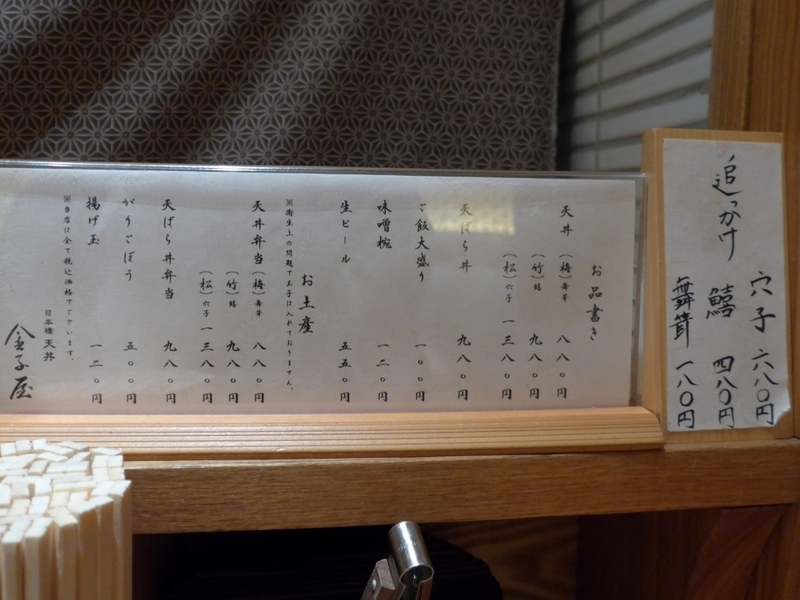 お品書き
天丼 (梅) 舞茸 八八〇円
(竹) 鱚 九八〇円
(松) 穴子 一三八〇円
天ばら丼 九八〇円
ご飯大盛り 一〇〇円
味噌椀 一二〇円
生ビール 五五〇円
お土産
※衛生上の問題で玉子は入れておりません。
天丼弁当 (梅) 舞茸 八八〇円
(竹) 鱚 九八〇円
(松) 穴子 一三八〇円
天ばら丼弁当 九八〇円
がりごぼう 五〇〇円
揚げ玉 一二〇円
※当店は全て税込価格でございます。
日本橋 天丼
金子屋
追っかけ
穴子 六八〇円
鱚 四八〇円
舞茸 一八〇円